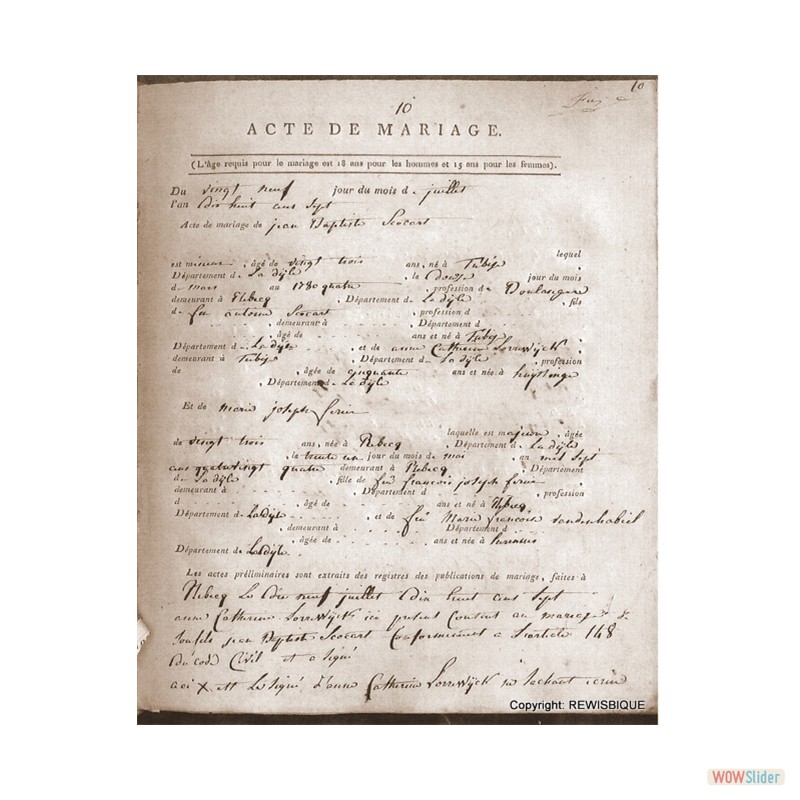 10
10
ACTE DE MARIAGE.
(L'âge requis pour le mariage est 18 ans pour les hommes et 15 ans pour les femmes).
Du vingt neuf jour du mois d. juillet
l'an dix huit cens sept
Acte de mariage de jean Baptiste Scocart
lequel
est mineur . âgé de vingt trois ans, né à Tubize
Département d. La dijle , le douze jour du mois
d. mars au 1780 quatre , profession d. Boulangere
demeurant à Rebecq , Département d. La dijle , fils
d. feu antoine Scocart , profession d
, demeurant à , Département d
, âgé de ans et né à Tubize
Département d. La dijle , et de anne Catherine Lorrewijck
demeurant à Tubize , Département d. La dijle , profession
de , âgée de cinquante ans et née à huijssinge
, Département d. La dijle
Et de marie joseph ferin
laquelle est majeure , âgée
de vingt trois ans, née à Rebecq , Département d. La dijle
, le trente un jour du mois de mai , an mil sept
cens quatrevingt quatre demeurant à Rebecq , Département
d. La dijle , fille de feu françois joseph ferin
demeurant à , Département d , profession
d , âgé de ans et né à Rebecq
Département d. La dijle , et de feu Marie françoise vandenhabiel
, demeurant à , Département d
, âgée de ans et née à
Département d. La dijle
Les actes préliminaires sont extraits des registres des publications de mariage, faites à
Rebecq Le dix neuf juillet dix huit cens sept
anne Catherine Lorrewijck ici present Consent au mariage de
son fils jean Baptiste Scocart Conformement a L'article 148
du code Civil et a signé
ceci X est Le signe d'anne Catherine Lorrewijck ne sachant ecrire
Copyright: REWISBIQUE
WOWSlider